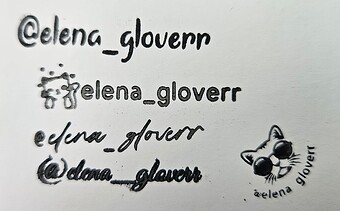 @elena_gloverr
elena_gloverr
elena_gloverr
@elena_gloverr
@elena gloverr